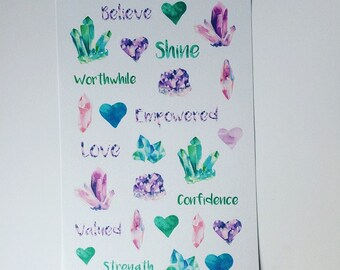 Believe
Shine
Worthwhile
Empowered
Love
Confidence
Valued
Strength